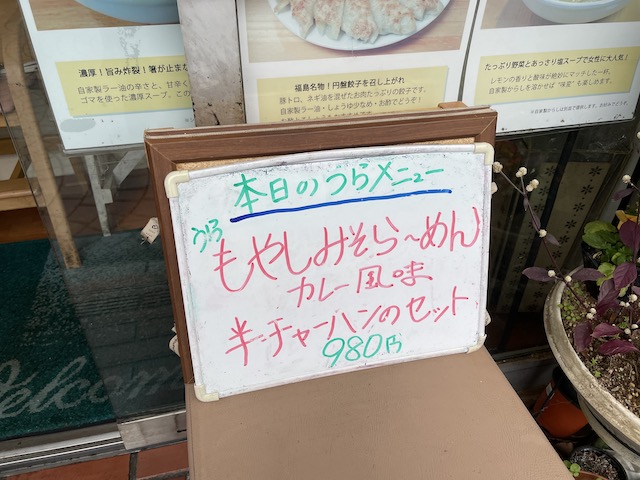 濃厚！旨み炸裂！箸が止まな
自家製ラー油の辛さと、甘辛く
ゴマを使った濃厚スープ。この
福島名物！円盤餃子を召し上がれ
豚トロ、ネギ油を混ぜたお肉たっぷりの餃子です。
自家製ラー油・しょうゆ少なめ・お酢でどうぞ！
たっぷり野菜とあっさり塩スープで女性に大人気！
レモンの香りと酸味が絶妙にマッチした一杯。
自家製からしを溶かせば“味変”も楽しめます。
本日のうらメニュー
うろ
もやしみそら〜めん
カレー風味
半チャーハンのセット
980円
Welcome